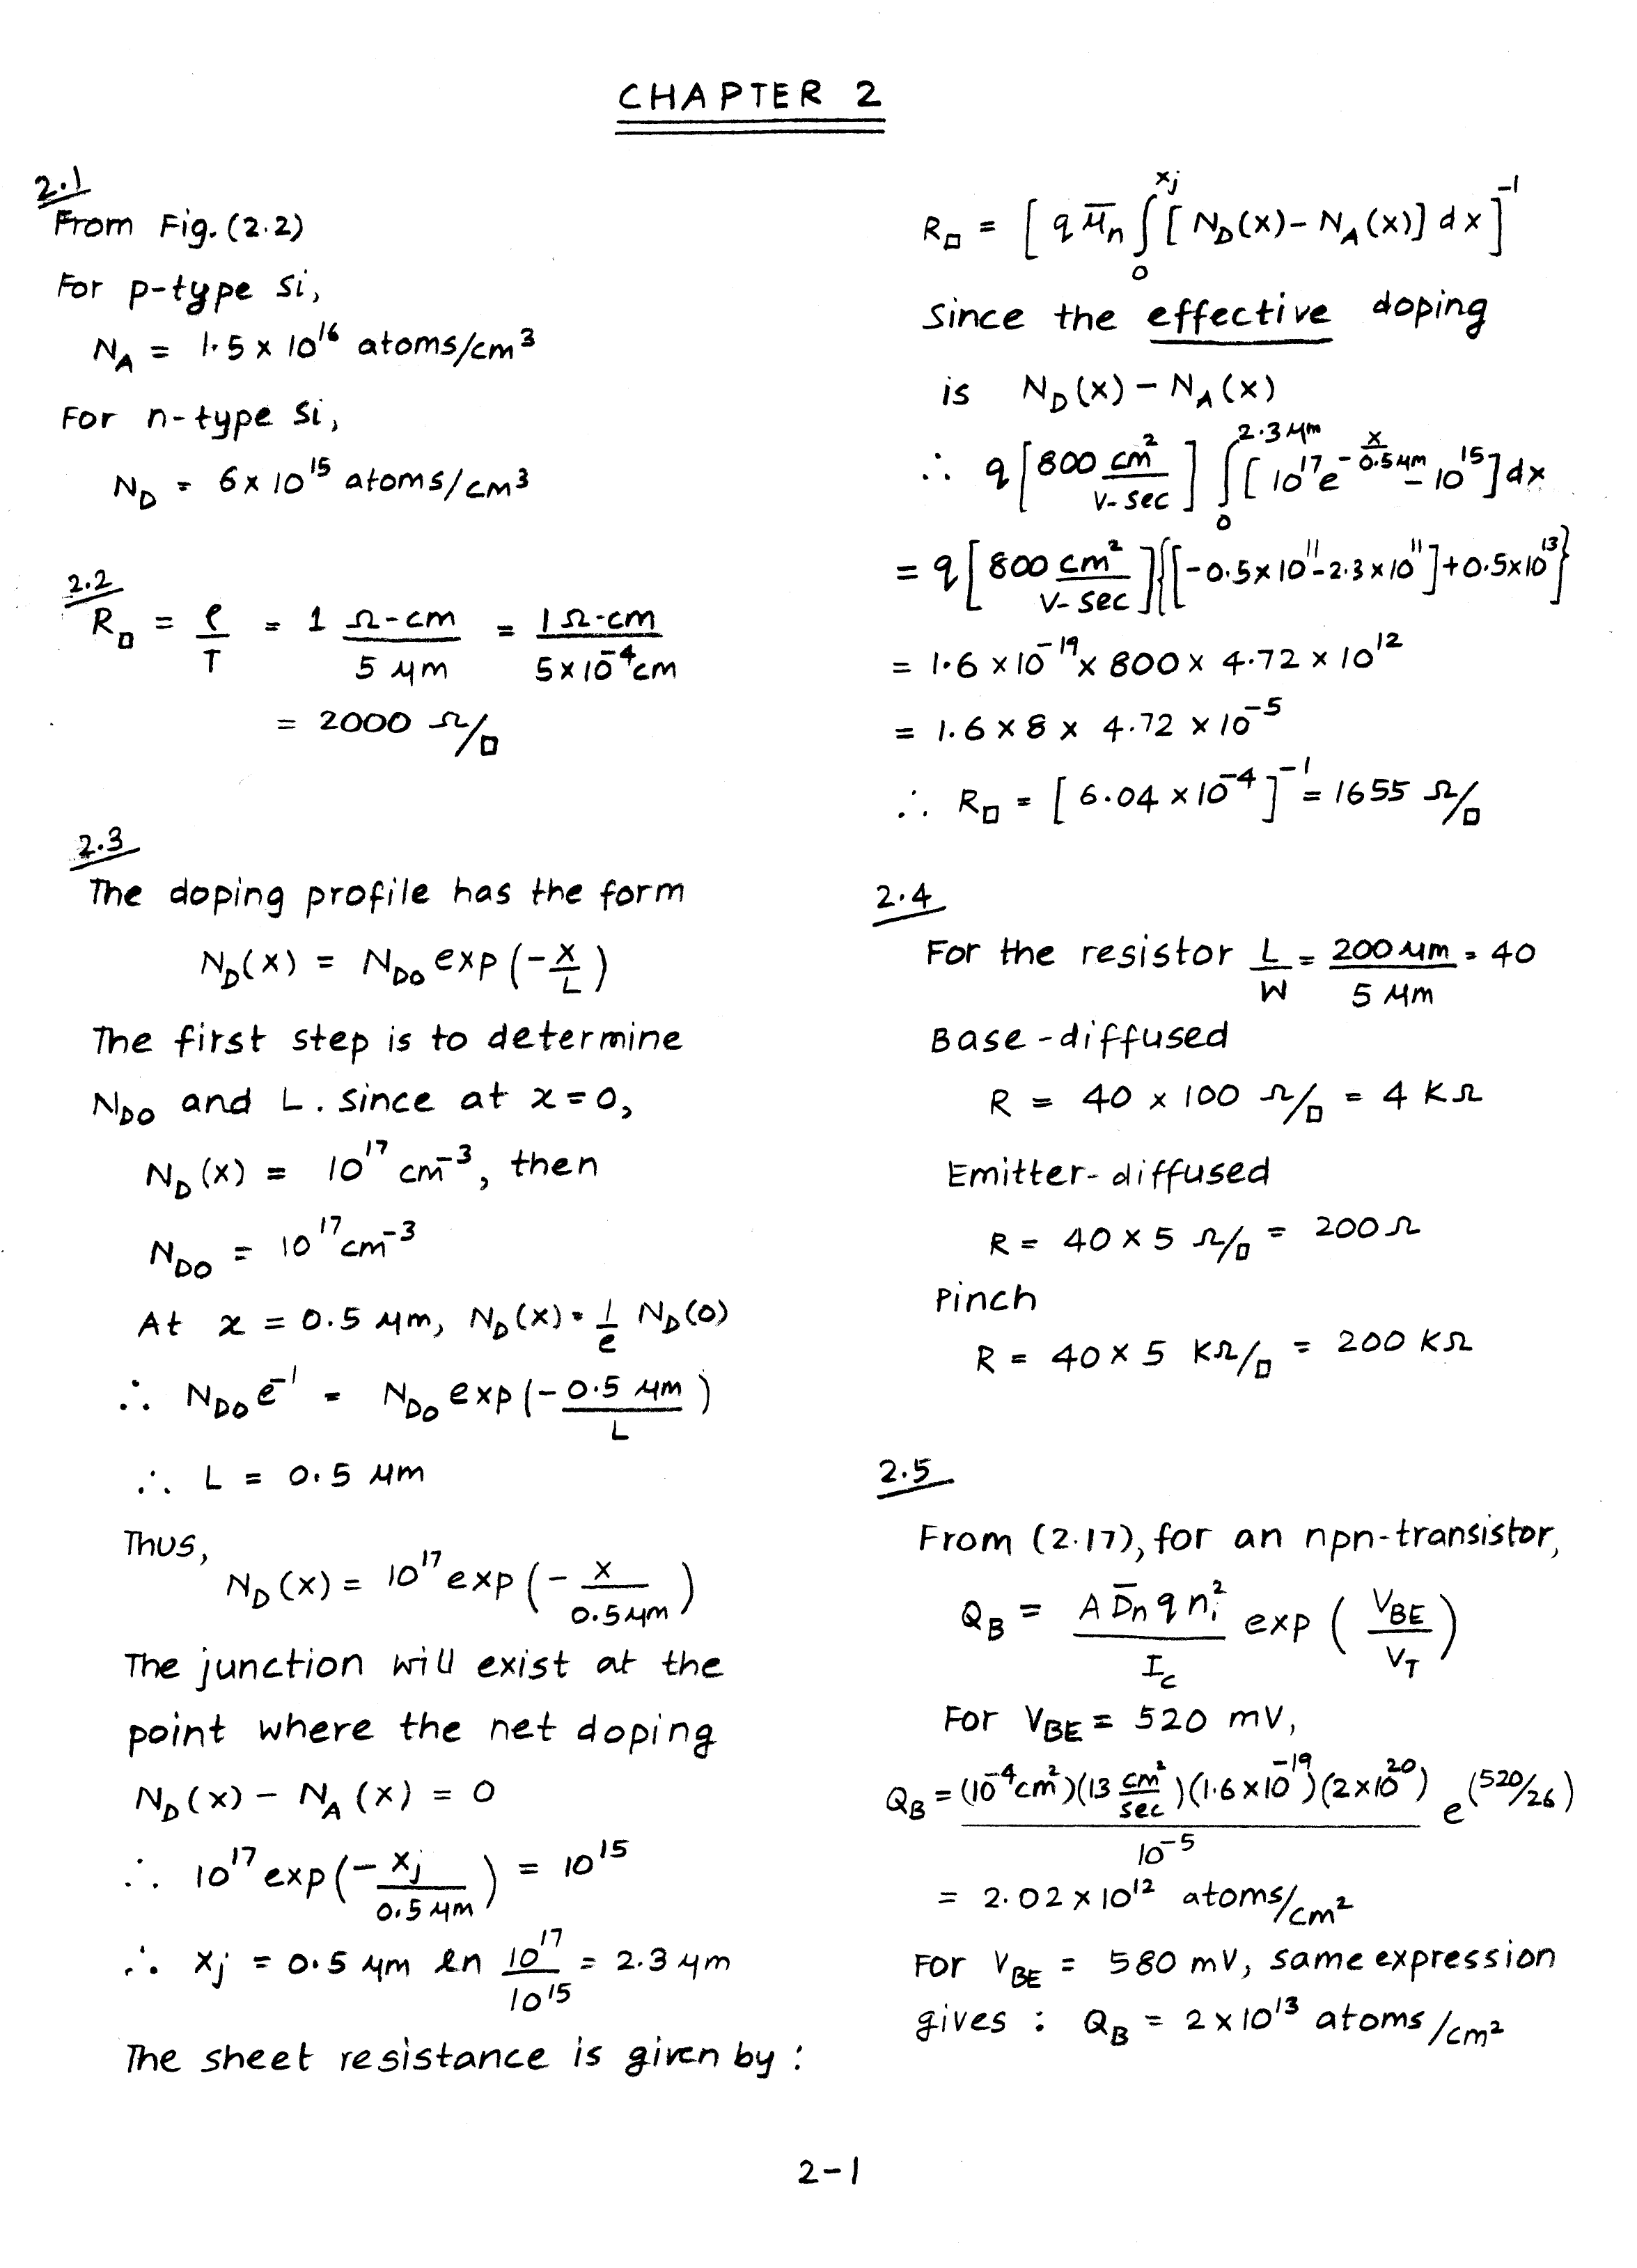 CHAPTER 2
2.1
From Fig. (2.2)
For p-type Si,
N_A = 1.5 × 10^16 atoms/cm^3
For n-type Si,
N_D = 6 × 10^15 atoms/cm^3
2.2
R_□ = ρ/T = 1 Ω-cm / 5 μm = 1 Ω-cm / 5×10^-4 cm
= 2000 Ω/□
2.3
The doping profile has the form
N_D(x) = N_DO exp(-x/L)
The first step is to determine
N_DO and L. Since at x = 0,
N_D(x) = 10^17 cm^-3, then
N_DO = 10^17 cm^-3
At x = 0.5 μm, N_D(x) = 1/e N_D(0)
∴ N_DO e^-1 = N_DO exp(-0.5 μm / L)
∴ L = 0.5 μm
Thus,
N_D(x) = 10^17 exp(- x / 0.5 μm)
The junction will exist at the
point where the net doping
N_D(x) - N_A(x) = 0
∴ 10^17 exp(- x_j / 0.5 μm) = 10^15
∴ x_j = 0.5 μm ln 10^17 / 10^15 = 2.3 μm
The sheet resistance is given by :
R_□ = [ q μ̄_n ∫_0^x_j [ N_D(x) - N_A(x)] dx ]^-1
Since the effective doping
is N_D(x) - N_A(x)
∴ q [800 cm^2 / V-sec] ∫_0^2.3 μm [10^17 e^-x/0.5 μm - 10^15] dx
= q [800 cm^2 / V-sec] {[-0.5×10^11 - 2.3×10^11] + 0.5×10^13}
= 1.6 × 10^-19 × 800 × 4.72 × 10^12
= 1.6 × 8 × 4.72 × 10^-5
∴ R_□ = [6.04 × 10^-4]^-1 = 1655 Ω/□
2.4
For the resistor L/W = 200 μm / 5 μm = 40
Base-diffused
R = 40 × 100 Ω/□ = 4 KΩ
Emitter-diffused
R = 40 × 5 Ω/□ = 200 Ω
Pinch
R = 40 × 5 KΩ/□ = 200 KΩ
2.5
From (2.17), for an npn-transistor,
Q_B = A D̄_n q n_i^2 / I_C exp (V_BE / V_T)
For V_BE = 520 mV,
Q_B = (10^-4 cm^2)(13 cm^2/sec)(1.6×10^-19)(2×10^20) / 10^-5 e^(520/26)
= 2.02 × 10^12 atoms/cm^2
For V_BE = 580 mV, same expression
gives : Q_B = 2 × 10^13 atoms/cm^2
2-1